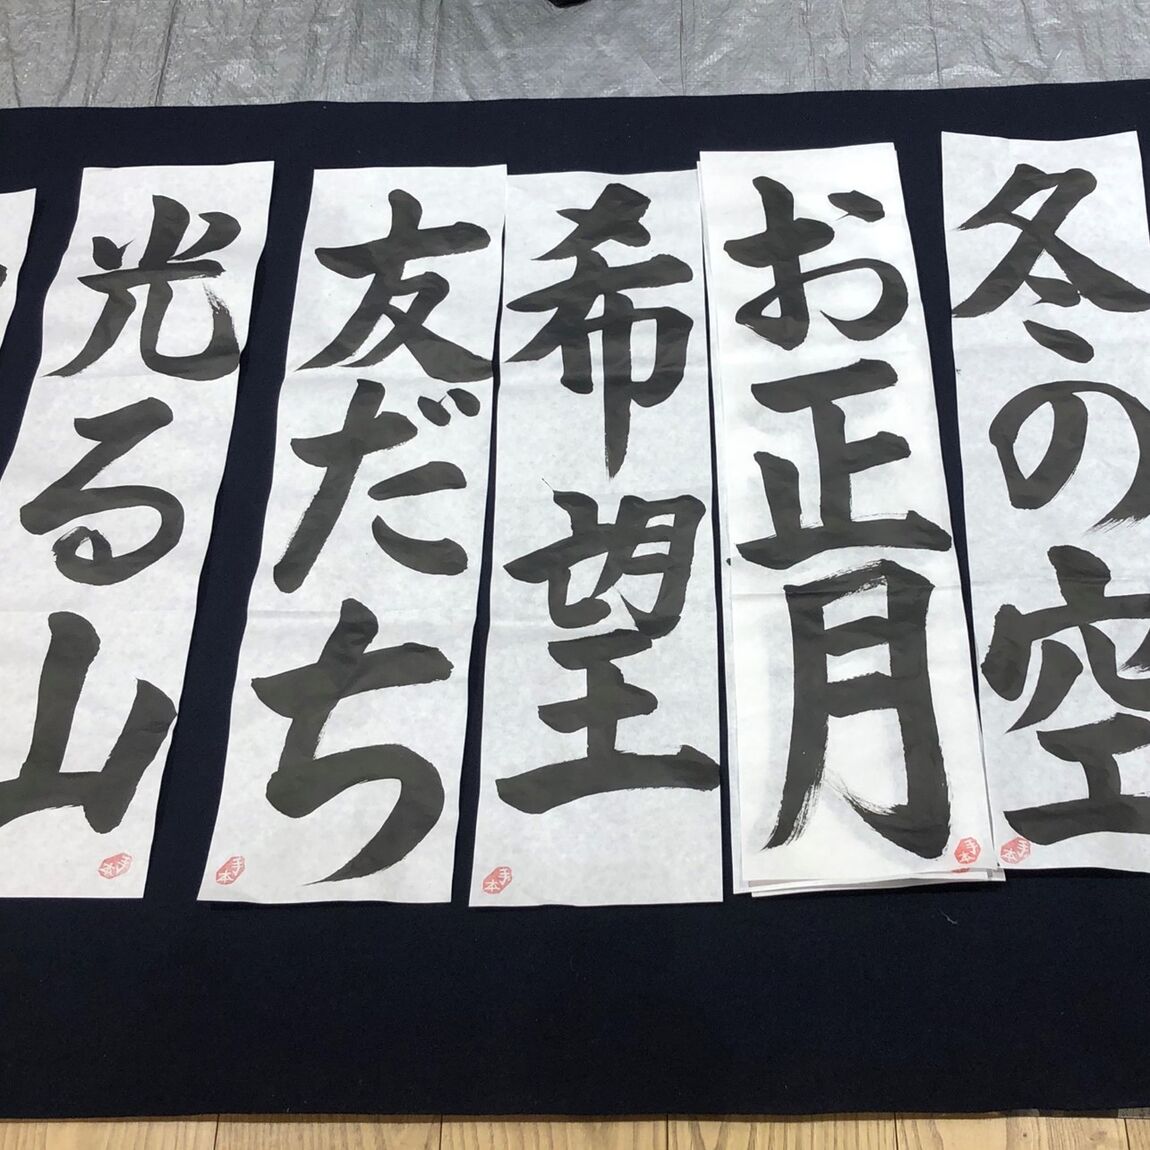 冬の空
手本
お正月
手本
希望
手本
友だち
手本
光る山
手本